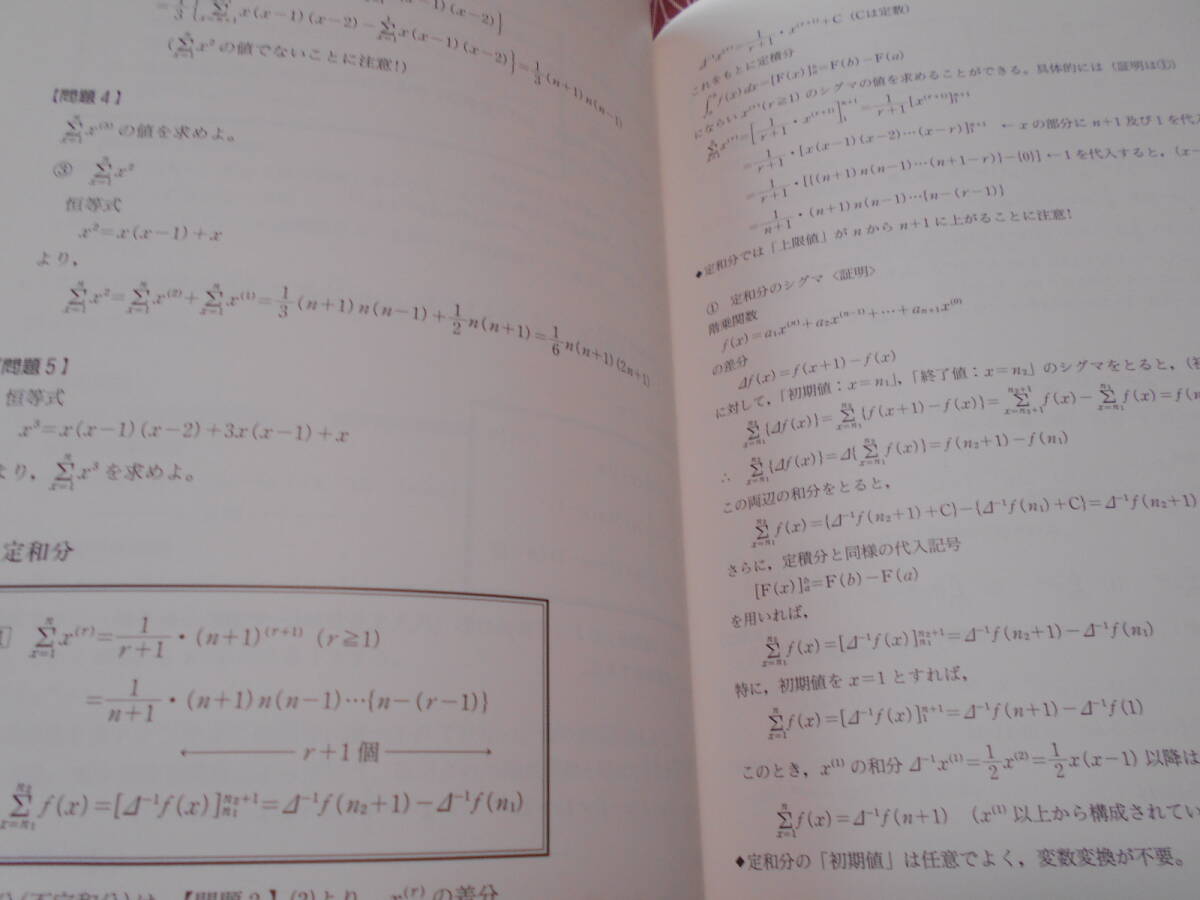 =1/3{Σ_{x=n+1} x(x−1)(x−2)−Σ_{x=1} x(x−1)(x−2)}=1/3(n+1)n(n−1)
(Σ_{x=1}^{n} x²の値でないことに注意!)
【問題4】
Σ_{x=1}^{n} x⁽³⁾の値を求めよ。
③ Σ_{x=1}^{n} x²
恒等式
x²=x(x−1)+x
より,
Σ_{x=1}^{n} x²=Σ_{x=1}^{n} x⁽²⁾+Σ_{x=1}^{n} x⁽¹⁾=1/3(n+1)n(n−1)+1/2 n(n+1)=1/6 n(n+1)(2n+1)
問題5】
恒等式
x³=x(x−1)(x−2)+3x(x−1)+x
より, Σ_{x=1}^{n} x³を求めよ。
定和分
Σ_{x=1}^{n} x⁽ʳ⁾=1/(r+1)・(n+1)⁽ʳ⁺¹⁾ (r≧1)
=1/(n+1)・(n+1)n(n−1)…{n−(r−1)}
← r+1個 →
Σ_{x=n₁}^{n₂} f(x)=[Δ⁻¹f(x)]_{n₁}^{n₂+1}=Δ⁻¹f(n₂+1)−Δ⁻¹f(n₁)
(不定和分)は,【問題2】(2)より, x⁽ʳ⁾の差分
Δ⁻¹x⁽ʳ⁾=1/(r+1)・x⁽ʳ⁺¹⁾+C (Cは定数)
これをもとに定積分
∫_a^b f(x)dx=[F(x)]_a^b=F(b)−F(a)
にならいx⁽ʳ⁾(r≧1)のシグマの値を求めることができる。具体的には(証明は①)
Σ_{x=1}^{n} x⁽ʳ⁾=[1/(r+1)・x⁽ʳ⁺¹⁾]_1^{n+1}=1/(r+1)[x⁽ʳ⁺¹⁾]_1^{n+1}
=1/(r+1)・[x(x−1)(x−2)…(x−r)]_1^{n+1} ←xの部分にn+1及び1を代入
=1/(r+1)・[{(n+1)n(n−1)…(n+1−r)}−{0}] ←1を代入すると, (x−
=1/(n+1)・(n+1)n(n−1)…{n−(r−1)}
◆定和分では「上限値」がnからn+1に上がることに注意!
① 定和分のシグマ〈証明〉
階乗関数
f(x)=a₁x⁽ⁿ⁾+a₂x⁽ⁿ⁻¹⁾+…+aₙ₊₁x⁽⁰⁾
の差分
Δf(x)=f(x+1)−f(x)
に対して,「初期値:x=n₁」,「終了値:x=n₂」のシグマをとると, (初
Σ_{x=n₁}^{n₂}{Δf(x)}=Σ_{x=n₁}^{n₂}{f(x+1)−f(x)}=Σ_{x=n₁+1}^{n₂+1} f(x)−Σ_{x=n₁}^{n₂} f(x)=f(n
∴ Σ_{x=n₁}^{n₂}{Δf(x)}=Δ{Σ_{x=n₁}^{n₂} f(x)}=f(n₂+1)−f(n₁)
この両辺の和分をとると,
Σ_{x=n₁}^{n₂} f(x)={Δ⁻¹f(n₂+1)+C}−{Δ⁻¹f(n₁)+C}=Δ⁻¹f(n₂+1)
さらに, 定積分と同様の代入記号
[F(x)]_a^b=F(b)−F(a)
を用いれば,
Σ_{x=n₁}^{n₂} f(x)=[Δ⁻¹f(x)]_{n₁}^{n₂+1}=Δ⁻¹f(n₂+1)−Δ⁻¹f(n₁)
特に, 初期値をx=1とすれば,
Σ_{x=1}^{n} f(x)=[Δ⁻¹f(x)]_1^{n+1}=Δ⁻¹f(n+1)−Δ⁻¹f(1)
このとき, x⁽¹⁾の和分Δ⁻¹x⁽¹⁾=1/2 x⁽²⁾=1/2 x(x−1)以降は
Σ_{x=1}^{n} f(x)=Δ⁻¹f(n+1) (x⁽¹⁾以上から構成されてい
◆定和分の「初期値」は任意でよく, 変数変換が不要。